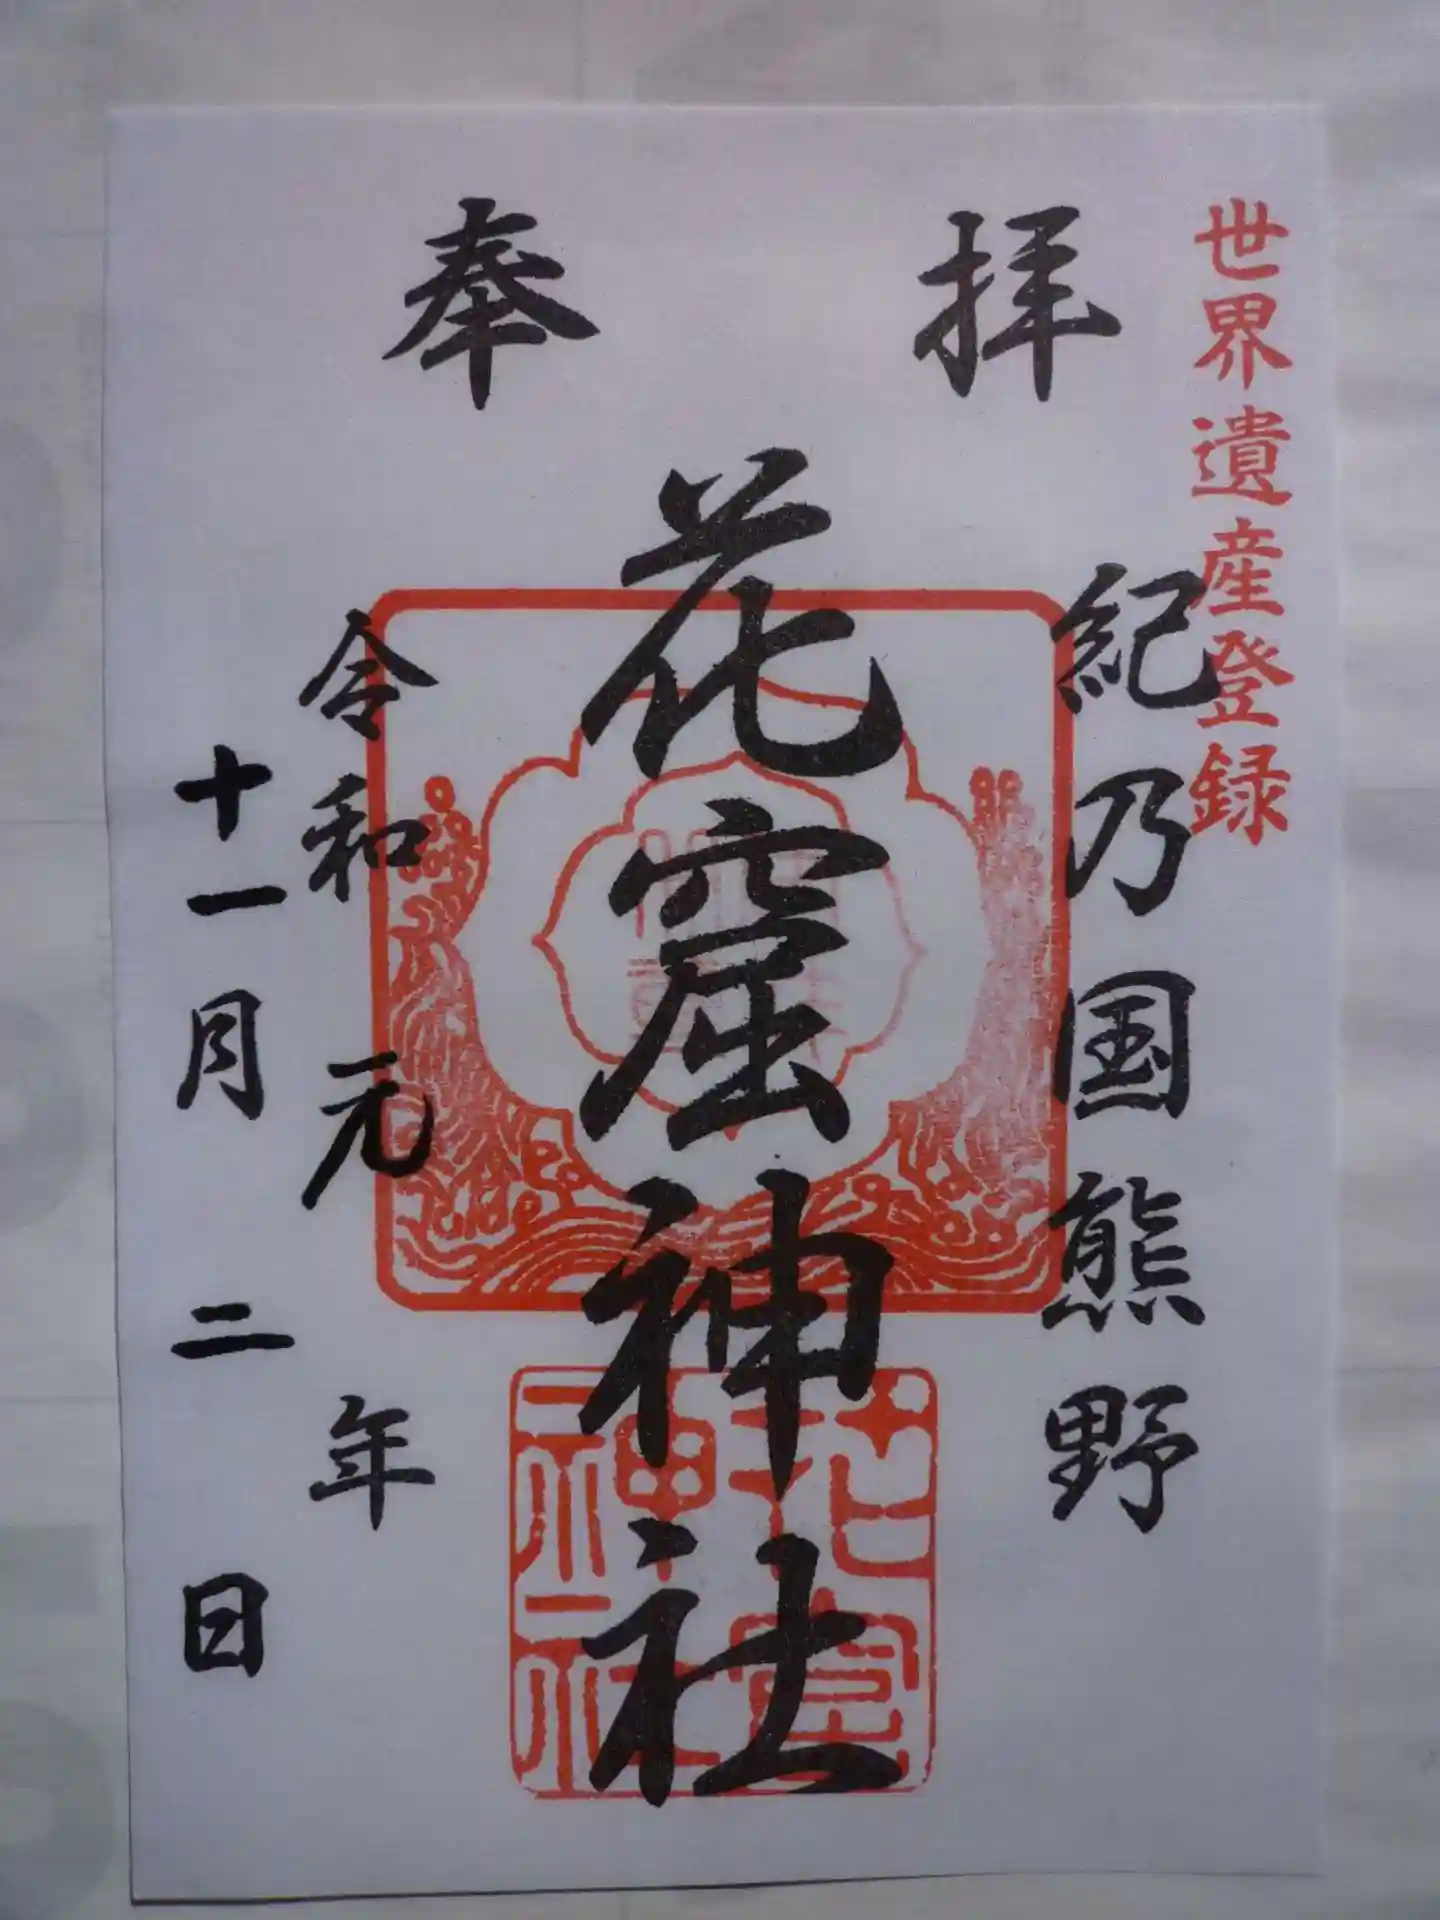 世界遺産登録
奉拝
紀乃国熊野
花窟神社
令和元年
十一月二日
花窟神社